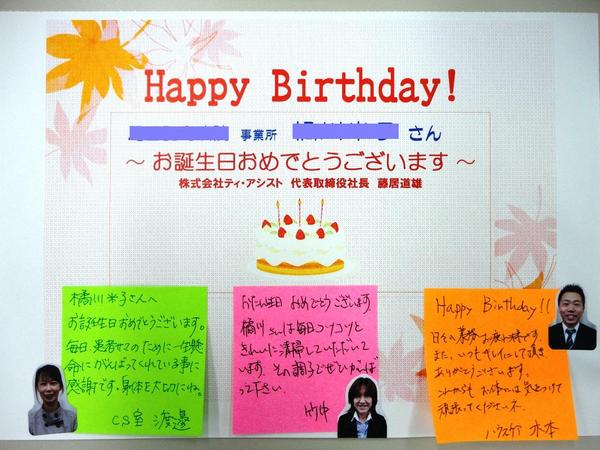 Happy Birthday!
事業所 さん
～お誕生日おめでとうございます～
株式会社ティ・アシスト 代表取締役社長 藤居道雄
橘川 子さんへ
お誕生日おめでとうございます。
毎日、患者さまのために一生懸
命にがんばってくれている事に
感謝です。身体を大切にね。
CS室 渡邊
お誕生日 おめでとうございます。
橘川さんは毎日コツコツと
きれいに清掃していただいて
います。その調子でがんば
って下さい。
竹中
Happy Birthday!!
日々の業務お疲れ様です。
また、いつもキレイにして頂き
ありがとうございます。
これからも お体には気をつけて
頑張ってくださいネ。
ハウスケア 木本